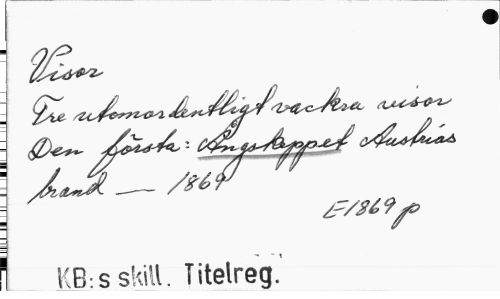 Visor
Tre utomordentligt vackra visor
Den första: Ångskeppet Austrias
brand — 1869
E1869 p
KB:s skill. Titelreg.